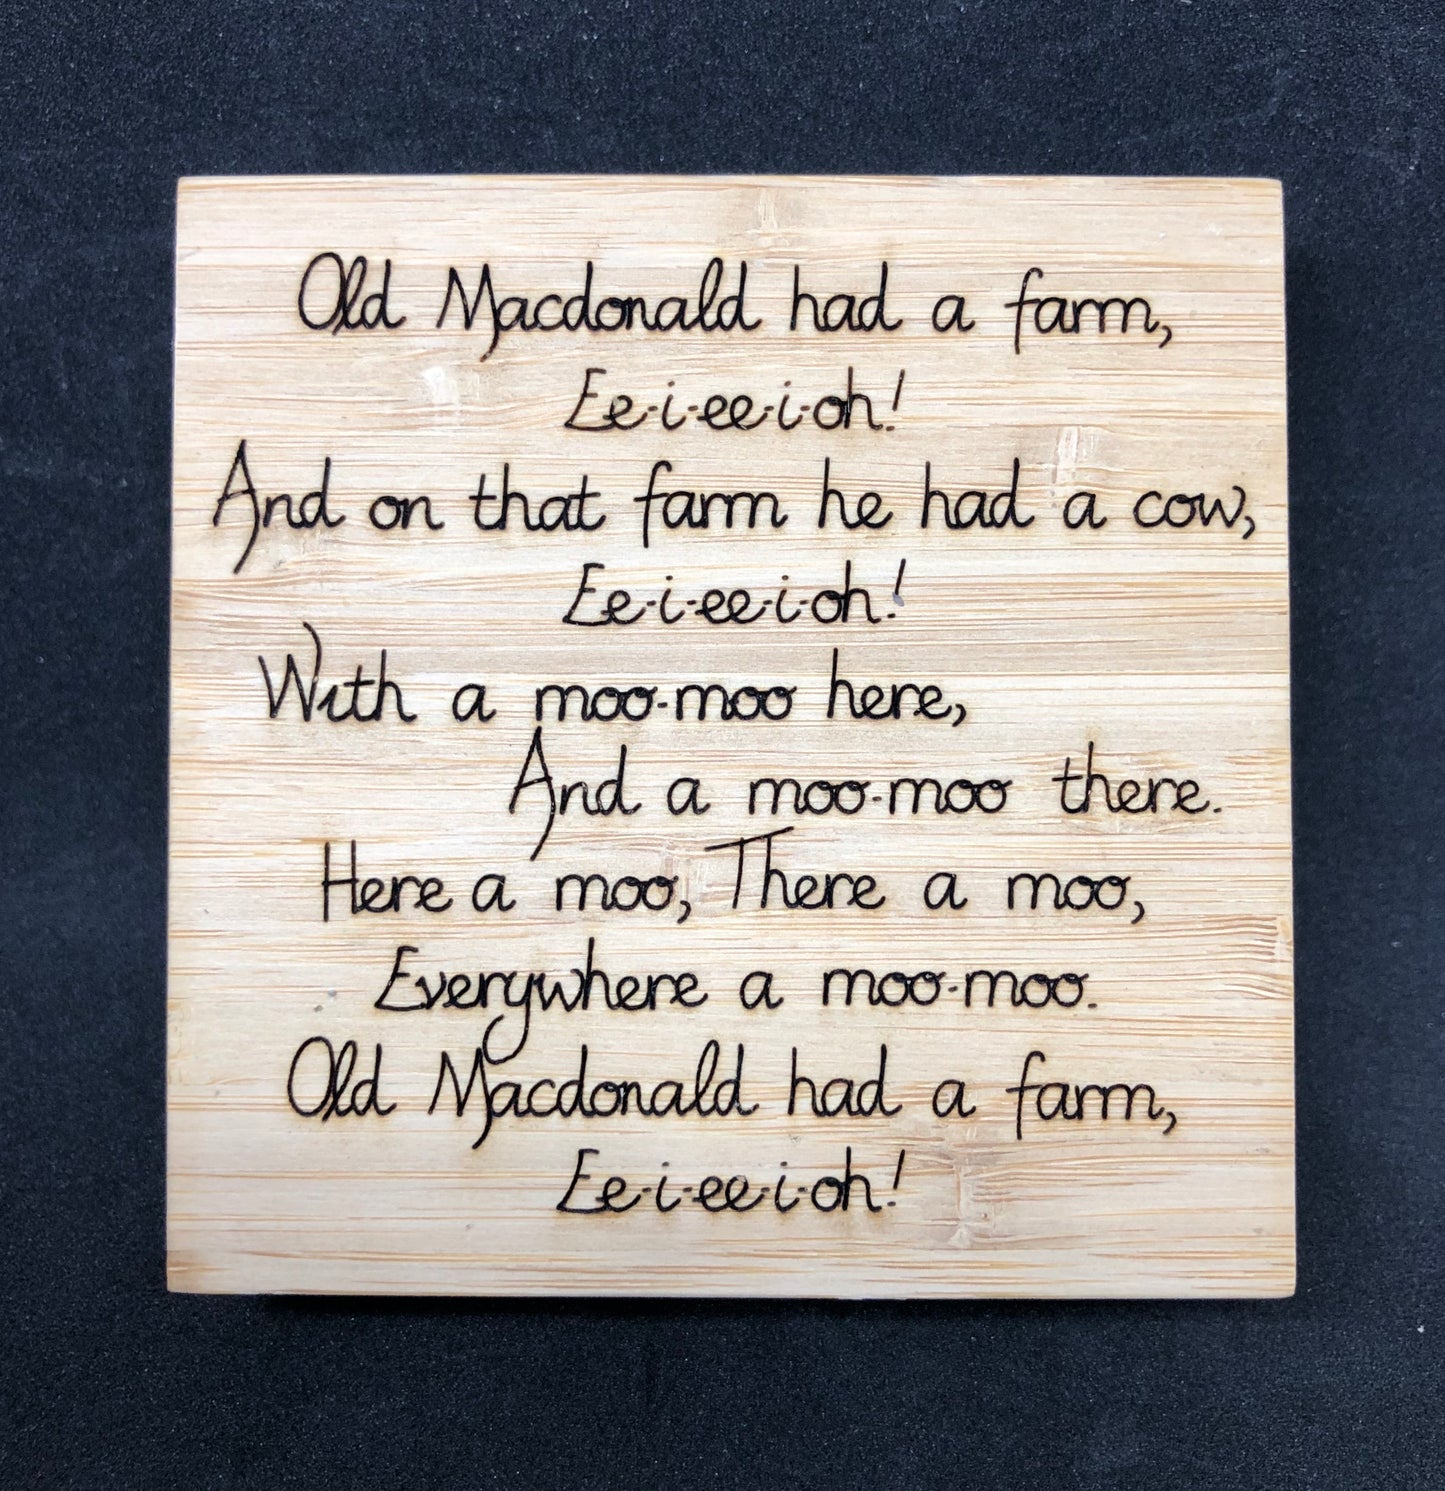 Old Macdonald had a farm,
Ee-i-ee-i-oh!
And on that farm he had a cow,
Ee-i-ee-i-oh!
With a moo-moo here,
And a moo-moo there.
Here a moo, There a moo,
Everywhere a moo-moo.
Old Macdonald had a farm,
Ee-i-ee-i-oh!